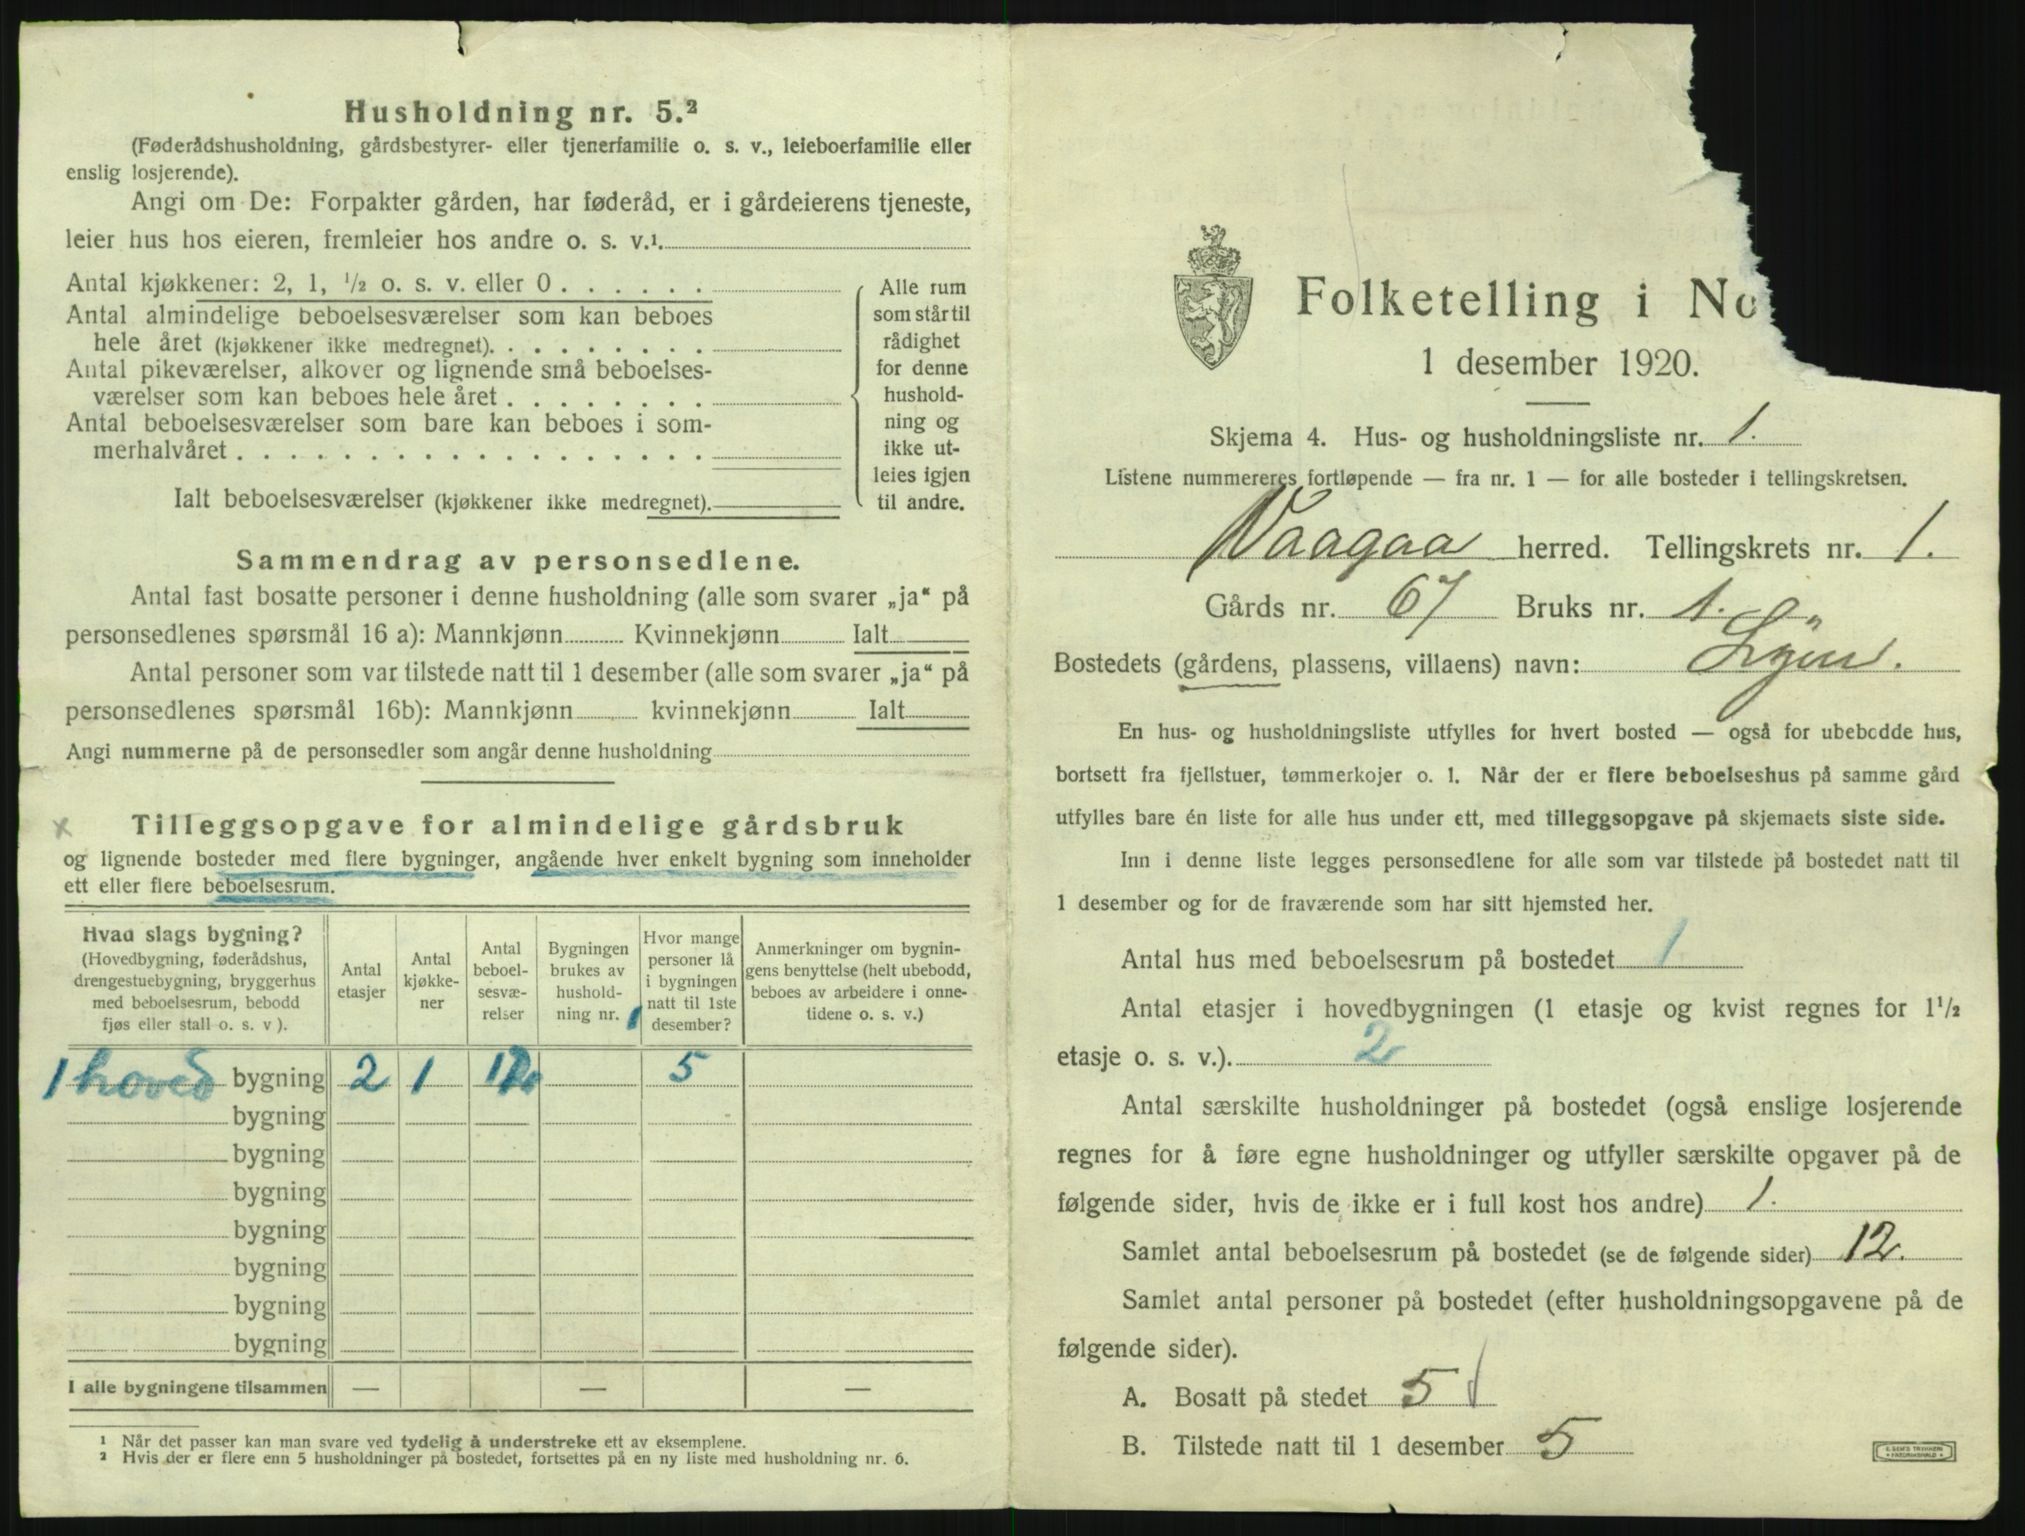 Husholdning nr. 5.²
(Føderådshusholdning, gårdsbestyrer- eller tjenerfamilie o. s. v., leieboerfamilie eller
enslig losjerende).
Angi om De: Forpakter gården, har føderåd, er i gårdeierens tjeneste,
leier hus hos eieren, fremleier hos andre o. s. v.¹
Antal kjøkkener: 2, 1, ½ o. s. v. eller 0 . . . . . .
Antal almindelige beboelsesværelser som kan beboes
hele året (kjøkkener ikke medregnet). . . . . . . . .
Antal pikeværelser, alkover og lignende små beboelses-
værelser som kan beboes hele året . . . . . . . .
Antal beboelsesværelser som bare kan beboes i som-
merhalvåret . . . . . . . . . . . . . . . . . .
Ialt beboelsesværelser (kjøkkener ikke medregnet).
Alle rum
som står til
rådighet
for denne
hushold-
ning og
ikke ut-
leies igjen
til andre.
Sammendrag av personsedlene.
Antal fast bosatte personer i denne husholdning (alle som svarer „ja“ på
personsedlenes spørsmål 16 a): Mannkjønn Kvinnekjønn Ialt
Antal personer som var tilstede natt til 1 desember (alle som svarer „ja“ på
personsedlenes spørsmål 16b): Mannkjønn kvinnekjønn Ialt
Angi nummerne på de personsedler som angår denne husholdning
x Tilleggsopgave for almindelige gårdsbruk
og lignende bosteder med flere bygninger, angående hver enkelt bygning som inneholder
ett eller flere beboelsesrum.
Hvad slags bygning?
(Hovedbygning, føderådshus,
drengestuebygning, bryggerhus
med beboelsesrum, bebodd
fjøs eller stall o. s. v ).
Antal
etasjer
Antal
kjøkke-
ner
Antal
beboel-
sesvæ-
relser
Bygningen
brukes av
hushold-
ning nr. 1
Hvor mange
personer lå
i bygningen
natt til 1ste
desember?
Anmerkninger om bygnin-
gens benyttelse (helt ubebodd,
beboes av arbeidere i onne-
tidene o. s. v.)
1 hoved bygning 2 1 12 5
bygning
bygning
bygning
bygning
bygning
bygning
bygning
I alle bygningene tilsammen — — —
¹ Når det passer kan man svare ved tydelig å understreke ett av eksemplene.
² Hvis der er flere enn 5 husholdninger på bostedet, fortsettes på en ny liste med husholdning nr. 6.
Folketelling i No
1 desember 1920.
Skjema 4. Hus- og husholdningsliste nr. 1.
Listene nummereres fortløpende — fra nr. 1 — for alle bosteder i tellingskretsen.
Vaagaa herred. Tellingskrets nr. 1.
Gårds nr. 67 Bruks nr. 1.
Bostedets (gårdens, plassens, villaens) navn:
En hus- og husholdningsliste utfylles for hvert bosted — også for ubebodde hus,
bortsett fra fjellstuer, tømmerkojer o. l. Når der er flere beboelseshus på samme gård
utfylles bare én liste for alle hus under ett, med tilleggsopgave på skjemaets siste side.
Inn i denne liste legges personsedlene for alle som var tilstede på bostedet natt til
1 desember og for de fraværende som har sitt hjemsted her.
Antal hus med beboelsesrum på bostedet 1
Antal etasjer i hovedbygningen (1 etasje og kvist regnes for 1½
etasje o. s. v.). 2
Antal særskilte husholdninger på bostedet (også enslige losjerende
regnes for å føre egne husholdninger og utfyller særskilte opgaver på de
følgende sider, hvis de ikke er i full kost hos andre) 1.
Samlet antal beboelsesrum på bostedet (se de følgende sider) 12.
Samlet antal personer på bostedet (efter husholdningsopgavene på de
følgende sider).
A. Bosatt på stedet 5
B. Tilstede natt til 1 desember 5